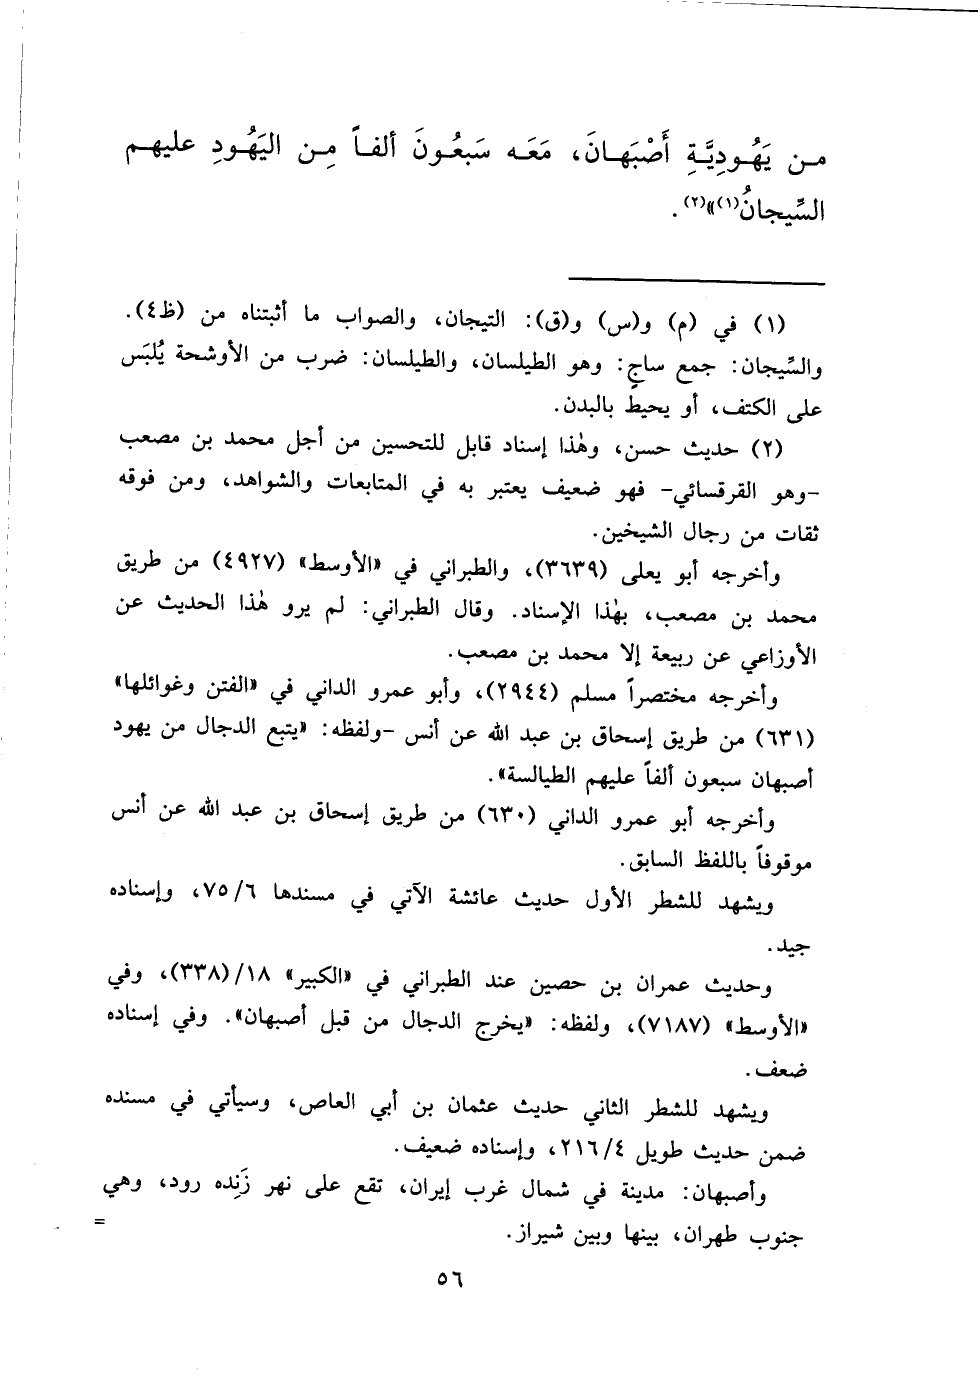 من يَهُودِيَّةِ أَصْبَهانَ، مَعَه سَبعُونَ ألفاً مِن اليَهُودِ عليهم
السِّيجانُ(١)»(٢).
(١) في (م) و(س) و(ق): التيجان، والصواب ما أثبتناه من (ظ٤).
والسِّيجان: جمع ساجٍ: وهو الطيلسان، والطيلسان: ضرب من الأوشحة يُلبَس
على الكتف، أو يحيط بالبدن.
(٢) حديث حسن، وهٰذا إسناد قابل للتحسين من أجل محمد بن مصعب
-وهو القرقسائي- فهو ضعيف يعتبر به في المتابعات والشواهد، ومن فوقه
ثقات من رجال الشيخين.
وأخرجه أبو يعلى (٣٦٣٩)، والطبراني في «الأوسط» (٤٩٢٧) من طريق
محمد بن مصعب، بهٰذا الإسناد. وقال الطبراني: لم يرو هٰذا الحديث عن
الأوزاعي عن ربيعة إلا محمد بن مصعب.
وأخرجه مختصراً مسلم (٢٩٤٤)، وأبو عمرو الداني في «الفتن وغوائلها»
(٦٣١) من طريق إسحاق بن عبد الله عن أنس -ولفظه: «يتبع الدجال من يهود
أصبهان سبعون ألفاً عليهم الطيالسة».
وأخرجه أبو عمرو الداني (٦٣٠) من طريق إسحاق بن عبد الله عن أنس
موقوفاً باللفظ السابق.
ويشهد للشطر الأول حديث عائشة الآتي في مسندها ٧٥/٦، وإسناده
جيد.
وحديث عمران بن حصين عند الطبراني في «الكبير» ١٨/(٣٣٨)، وفي
«الأوسط» (٧١٨٧)، ولفظه: «يخرج الدجال من قبل أصبهان». وفي إسناده
ضعف.
ويشهد للشطر الثاني حديث عثمان بن أبي العاص، وسيأتي في مسنده
ضمن حديث طويل ٢١٦/٤، وإسناده ضعيف.
وأصبهان: مدينة في شمال غرب إيران، تقع على نهر زَنِده رود، وهي
جنوب طهران، بينها وبين شيراز. =
٥٦